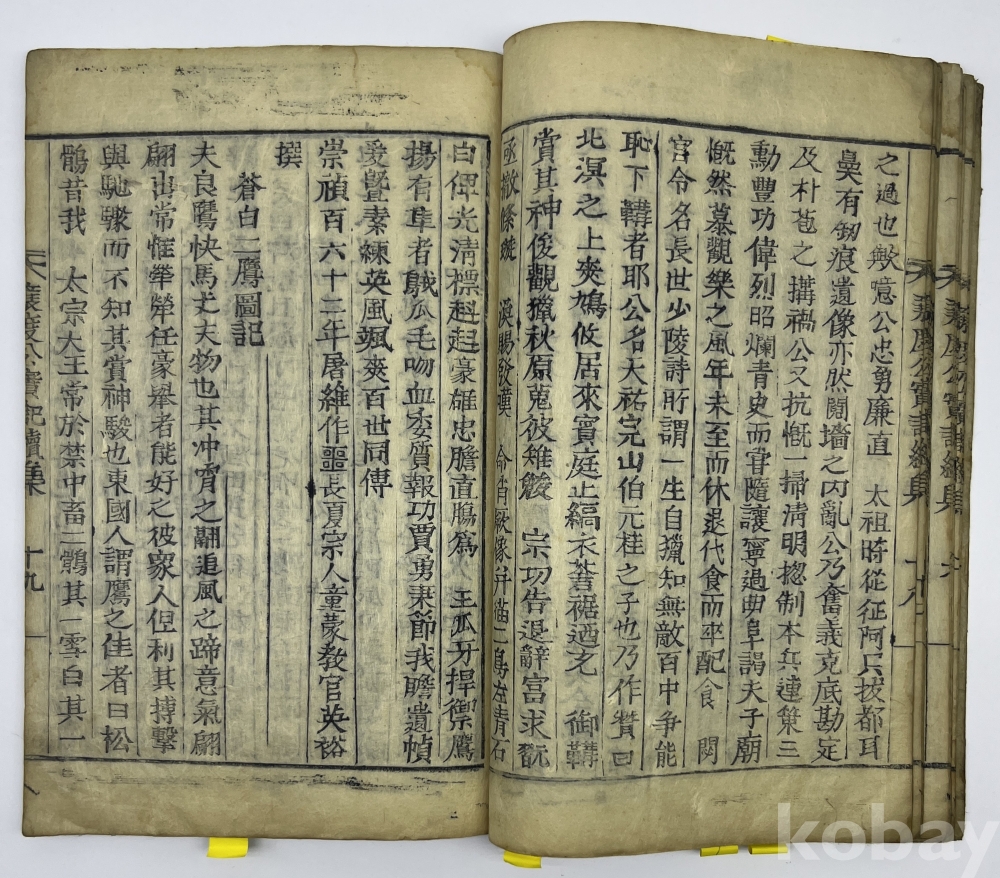 之過也歟噫公忠勇廉直 太祖時從征阿只拔都耳
鼻有刱痕遺像亦然鬩墻之內亂公乃奮義克底勘定
及朴苞之搆禍公又抗慨一掃淸明摠制本兵連策三
勳豐功偉烈昭爛靑史而官隨讓寧過曲阜謁夫子廟
慨然慕觀樂之風年未至而休退代食而率配食 閟
宮令名長世少陵詩所謂一生自獵知無敵百中爭能
恥下鞲者耶公名天祐完山伯元桂之子也乃作贊曰
北溟之上爽鳩攸居來賓庭止縞衣蒼裾迺之 御鞲
賞其神俊觀獵秋原蒐彼雉鵔 宗功告退辭富求翫
亟撤絛鏇 渙賜發嘆 命肖厥像幷描二鳥左靑右
白俾光淸標赳赳豪雄忠膽直膓爲 王瓜牙捍禦鷹
揚有隼者戝瓜毛吻血委質報功賈勇秉節我瞻遺幀
爱曁素練英風颯爽百世同傳
崇禎百六十二年屠維作噩長夏宗人童蒙敎官英裕
撰
蒼白二鷹圖記
夫良鷹快馬丈夫物也其冲霄之翮追風之蹄意氣翩
翩出常惟犖犖任豪擧者能好之彼衆人但利其搏擊
與馳驟而不知其賞神駿也東國人謂鷹之佳者曰松
鶻昔我 太宗大王常於禁中畜二鶻其一雪白其一
襄度公實記續集 十九